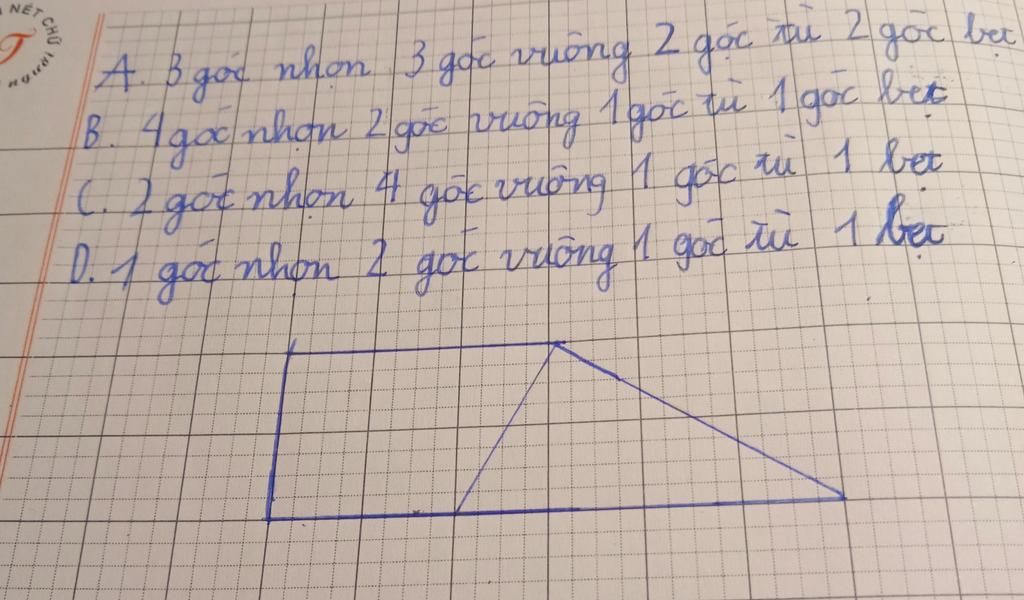 NÉT CHỮ
NGƯỜI
A. 3 góc nhọn 3 góc vuông 2 góc tù 2 góc bẹt
B. 4 góc nhọn 2 góc vuông 1 góc tù 1 góc bẹt
C. 2 góc nhọn 4 góc vuông 1 góc tù 1 bẹt
D. 1 góc nhọn 2 góc vuông 1 góc tù 1 bẹt